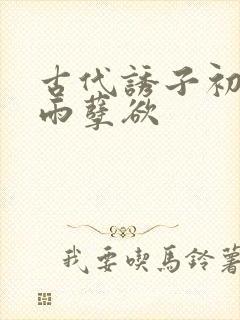 古代誘子初
雨孽欲
我要喫馬鈴薯